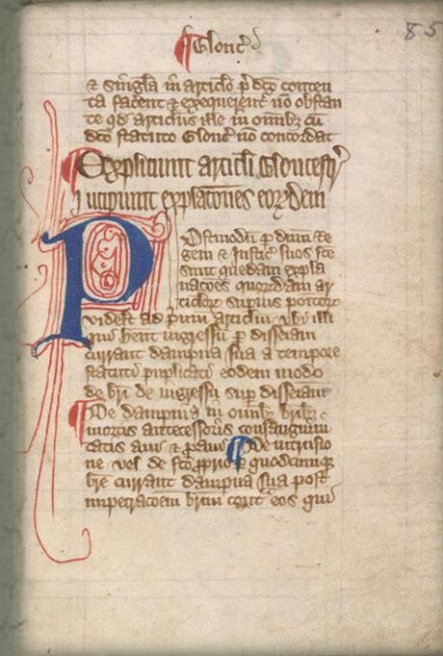 85
Glouc'
& singla in articlo p̄dco conten
ta facent & exequerent nō obstan
te qd articlus ille in omībȝ cū
dco statuto Glouc' nō concordat
Expliciunt articli Gloucestr'
Incipiunt explanatōnes eorȝdem
Postmodū p dnm Re
gem & Justic' suos fce
sunt quedam expla
nacōes quorūdam ar
ticlorȝ supius positorȝ
videlȝ ad pimū articlum vbi illi
qui hent ingressū p disseisinam
currant dampna sua a tempore
statuti puplicati eodem modo
de bri de ingressu sup disseisinam
De dampnis in omībȝ bribȝ
mortis antecessoris consanguini
tatis aui & paui De intrusio
ne vel de quodcumqȝ
bre currant dampna sua post
impetracōem brium cont' eos qui